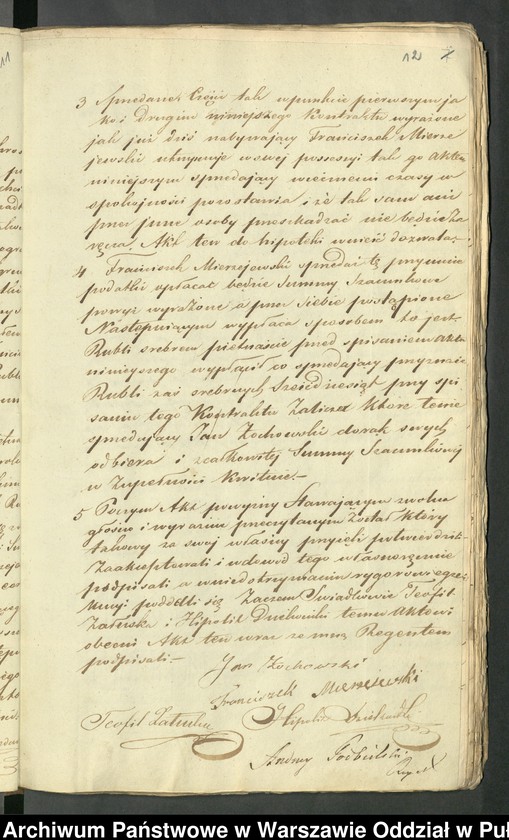 12
11
3 Sprzedane Części tak w punkcie pierwszym ja
koś drugim niniejszego Kontraktu wyrażone
jak już dziś nabywający Franciszek Mierze
jewski utrzymuje w swej possessyi tak go Aktem
niniejszym sprzedający wiecznemi czasy w
spokojności pozostawia i że tak sam ani
przez inne osoby przeszkadzać nie będzie za
ręcza, Akt ten do hipoteki wnieść dozwala.
4 Franciszek Mierzejewski sprzedaż tę przyjmuie
podatki opłacać będzie Summy Szacunkowe
powyż wyrażone a przez siebie postąpione
Następującym wypłaca sposobem to jest
Rubli srebrem piętnaście przed spisaniem Aktu
niniejszego wypłacił co sprzedający przyznaie
Rubli zaś srebrnych Sześćdziesiąt przy spi
saniu tego Kontraktu Zalicza które temie
sprzedający Jan Żochowski do rąk swych
odbiera i z całkowitej Summy Szacunkowej
w Zupełności Kwituie.—
5 Poczym Akt powyższy Stawającym zwolna
głośno i wyraźnie przeczytanym został który
takowy za swój własny przyjęli potwierdzili
Zaakceptowali i w dowód tego własnoręcznie
podpisali a w niedotrzymaniu rygorowi egze
kucyi poddali się Zaczem Świadkowie Teofil
Załuska i Hipolit temu Aktowi
obecni Akt ten wraz ze mną Regentem
podpisali—
Jan Żochowski
Franciszek Mierzejewski
Teofil Hipolit
Andrzej
Rejent
Archiwum Państwowe w Warszawie Oddział w Puł